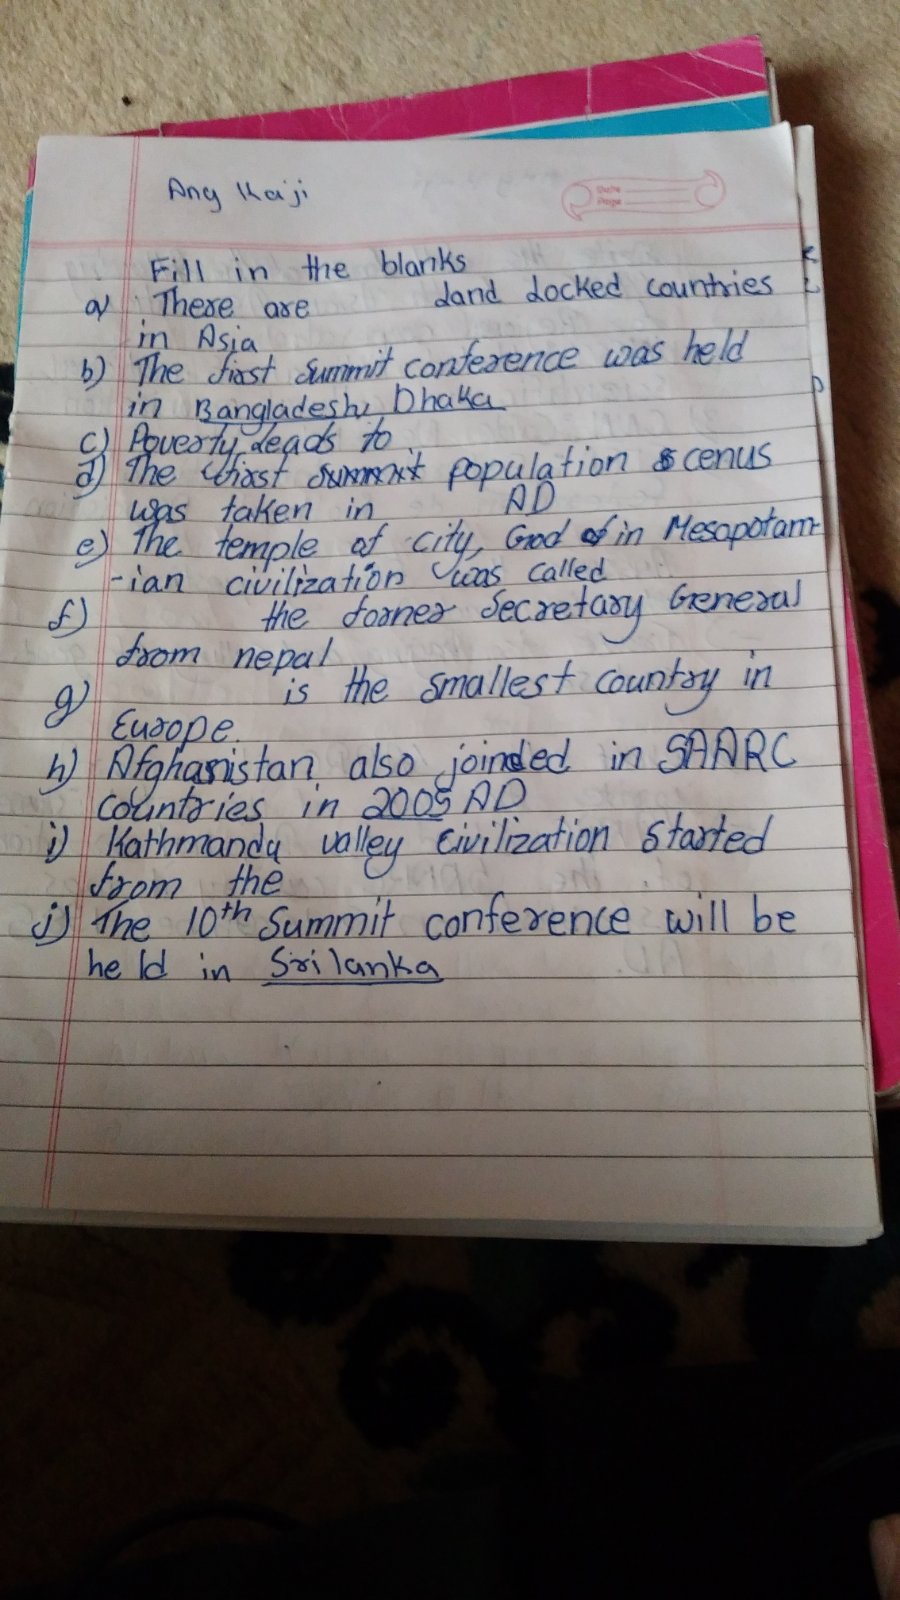 Ang Kaji
Date
Page
Fill in the blanks
a) There are land locked countries
in Asia
b) The first summit conference was held
in Bangladesh, Dhaka
c) Poverty leads to
d) The first population cenus
was taken in AD
e) The temple of city, God in Mesopotam-
-ian civilization was called
f) the former Secretary General
from nepal
g) is the smallest country in
Europe.
h) Afghanistan also joinded in SAARC
countries in 2005 AD
i) Kathmandu valley civilization started
from the
j) The 10th Summit conference will be
held in Srilanka